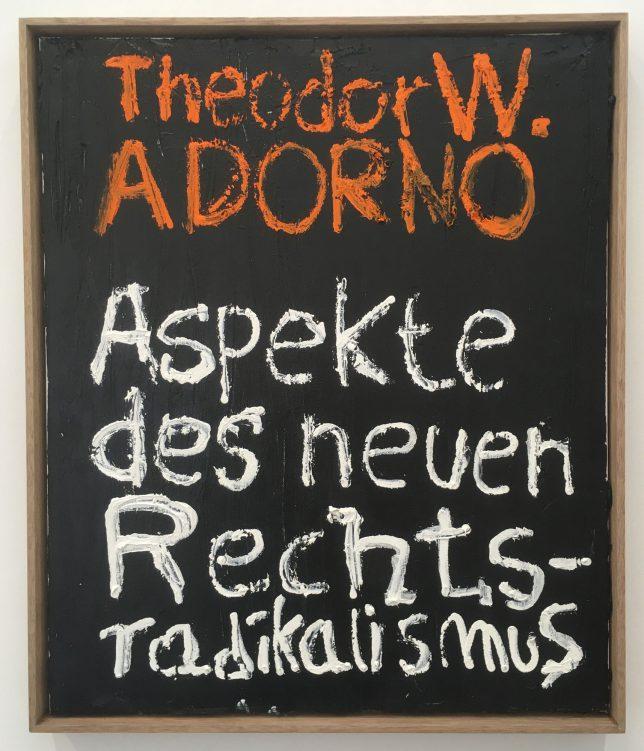 Theodor W.
ADORNO
Aspekte
des neuen
Rechts-
radikalismus